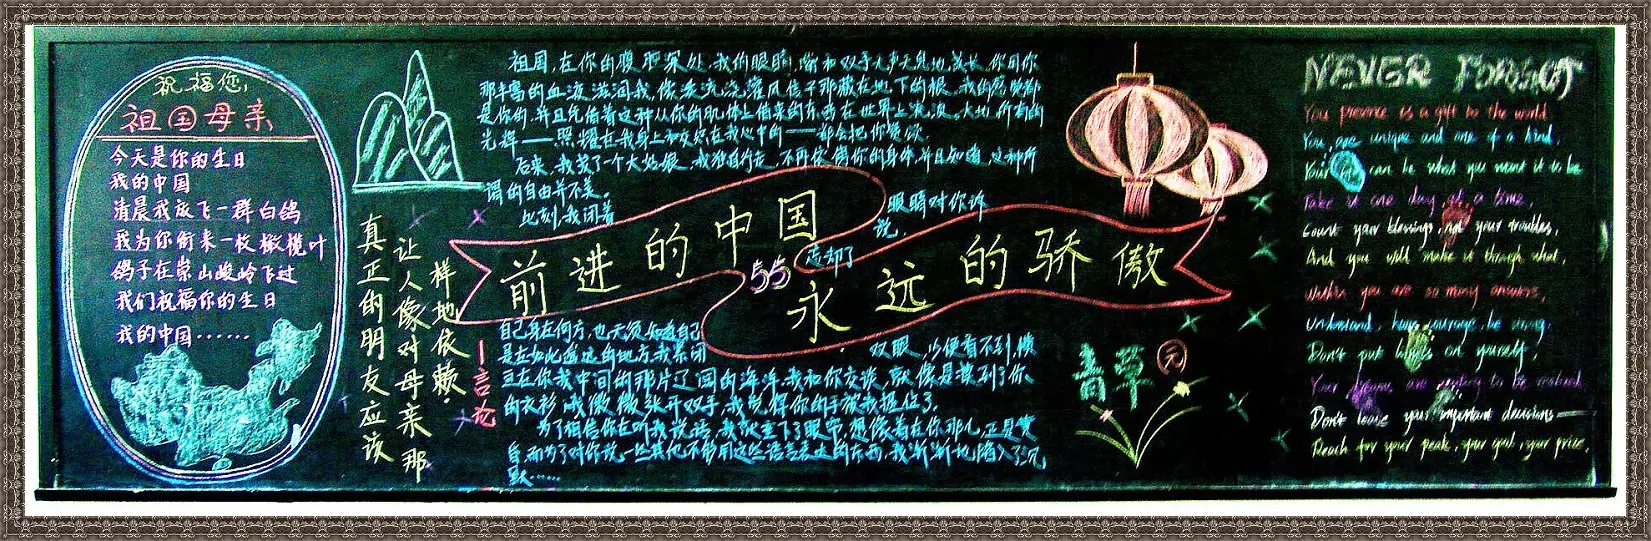 祝福您,
祖国母亲
今天是你的生日
我的中国
清晨我放飞一群白鸽
我为你衔来一枚橄榄叶
鸽子在崇山峻岭飞过
我们祝福你的生日
我的中国……
真正的朋友应该
让人像对母亲那
样地依赖
—言论
祖国,在你的腹 深处,我的眼睛,嘴和双手无声无息地成长,你用你
那丰富的血液滋润我,像
是你的,并且凭借着这种从你的肌体上借来的东西在世界上流浪。大地所有的
光辉——照耀在我身上和 在我心中的——都会把你赞颂.
后来,我 了一个大姑娘,我独自行走,不再依偎你的身体,并且知道,这种所
谓的自由并不美。
此刻,我闭着
眼睛对你诉
说,
忘却了
前进的中国
55
永远的骄傲
自己身在何方,也无须知道自己
是在如此遥远的地方,我紧闭
双眼,以便看不到,横
亘在你我中间的那片辽阔的海洋,我和你交谈,就像是摸到了你
的衣衫,我微微张开双手,我觉得你的手被我握住了.
为了相信你在听我说话,我
而为了对你说一些其他不能用这些语言表达的东西,我渐渐地陷入了沉
默……
青草园
NEVER FORGET
You presence is a gift to the world.
You are unique and one of a kind.
Your can be what you want it to be.
Take it one day at a time,
Count your blessings, not your troubles,
And you will make it through what,
Within you are so many answers,
Understand, have courage, be strong.
Don't put limits on yourself,
Your dreams are waiting to be realized.
Don't leave your important decisions—
Reach for your peak, your goal, your prize,